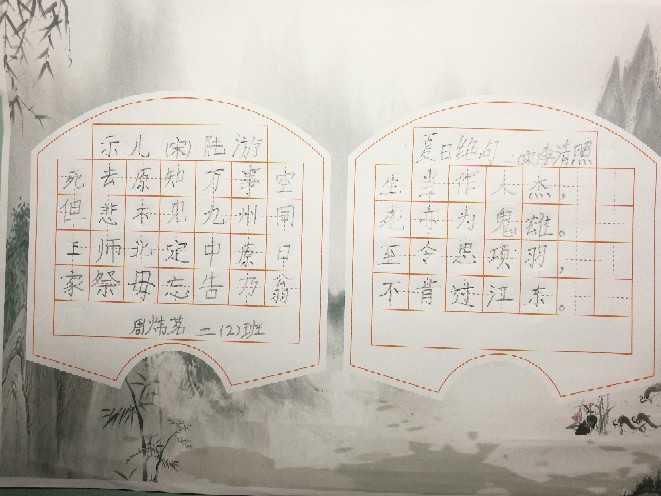 示儿 (宋) 陆游
死去原知万事空
但悲不见九州同
王师北定中原日
家祭毋忘告乃翁
周炜茗 二(2)班
夏日绝句 (宋)李清照
生当作人杰，
死亦为鬼雄。
至今思项羽，
不肯过江东。